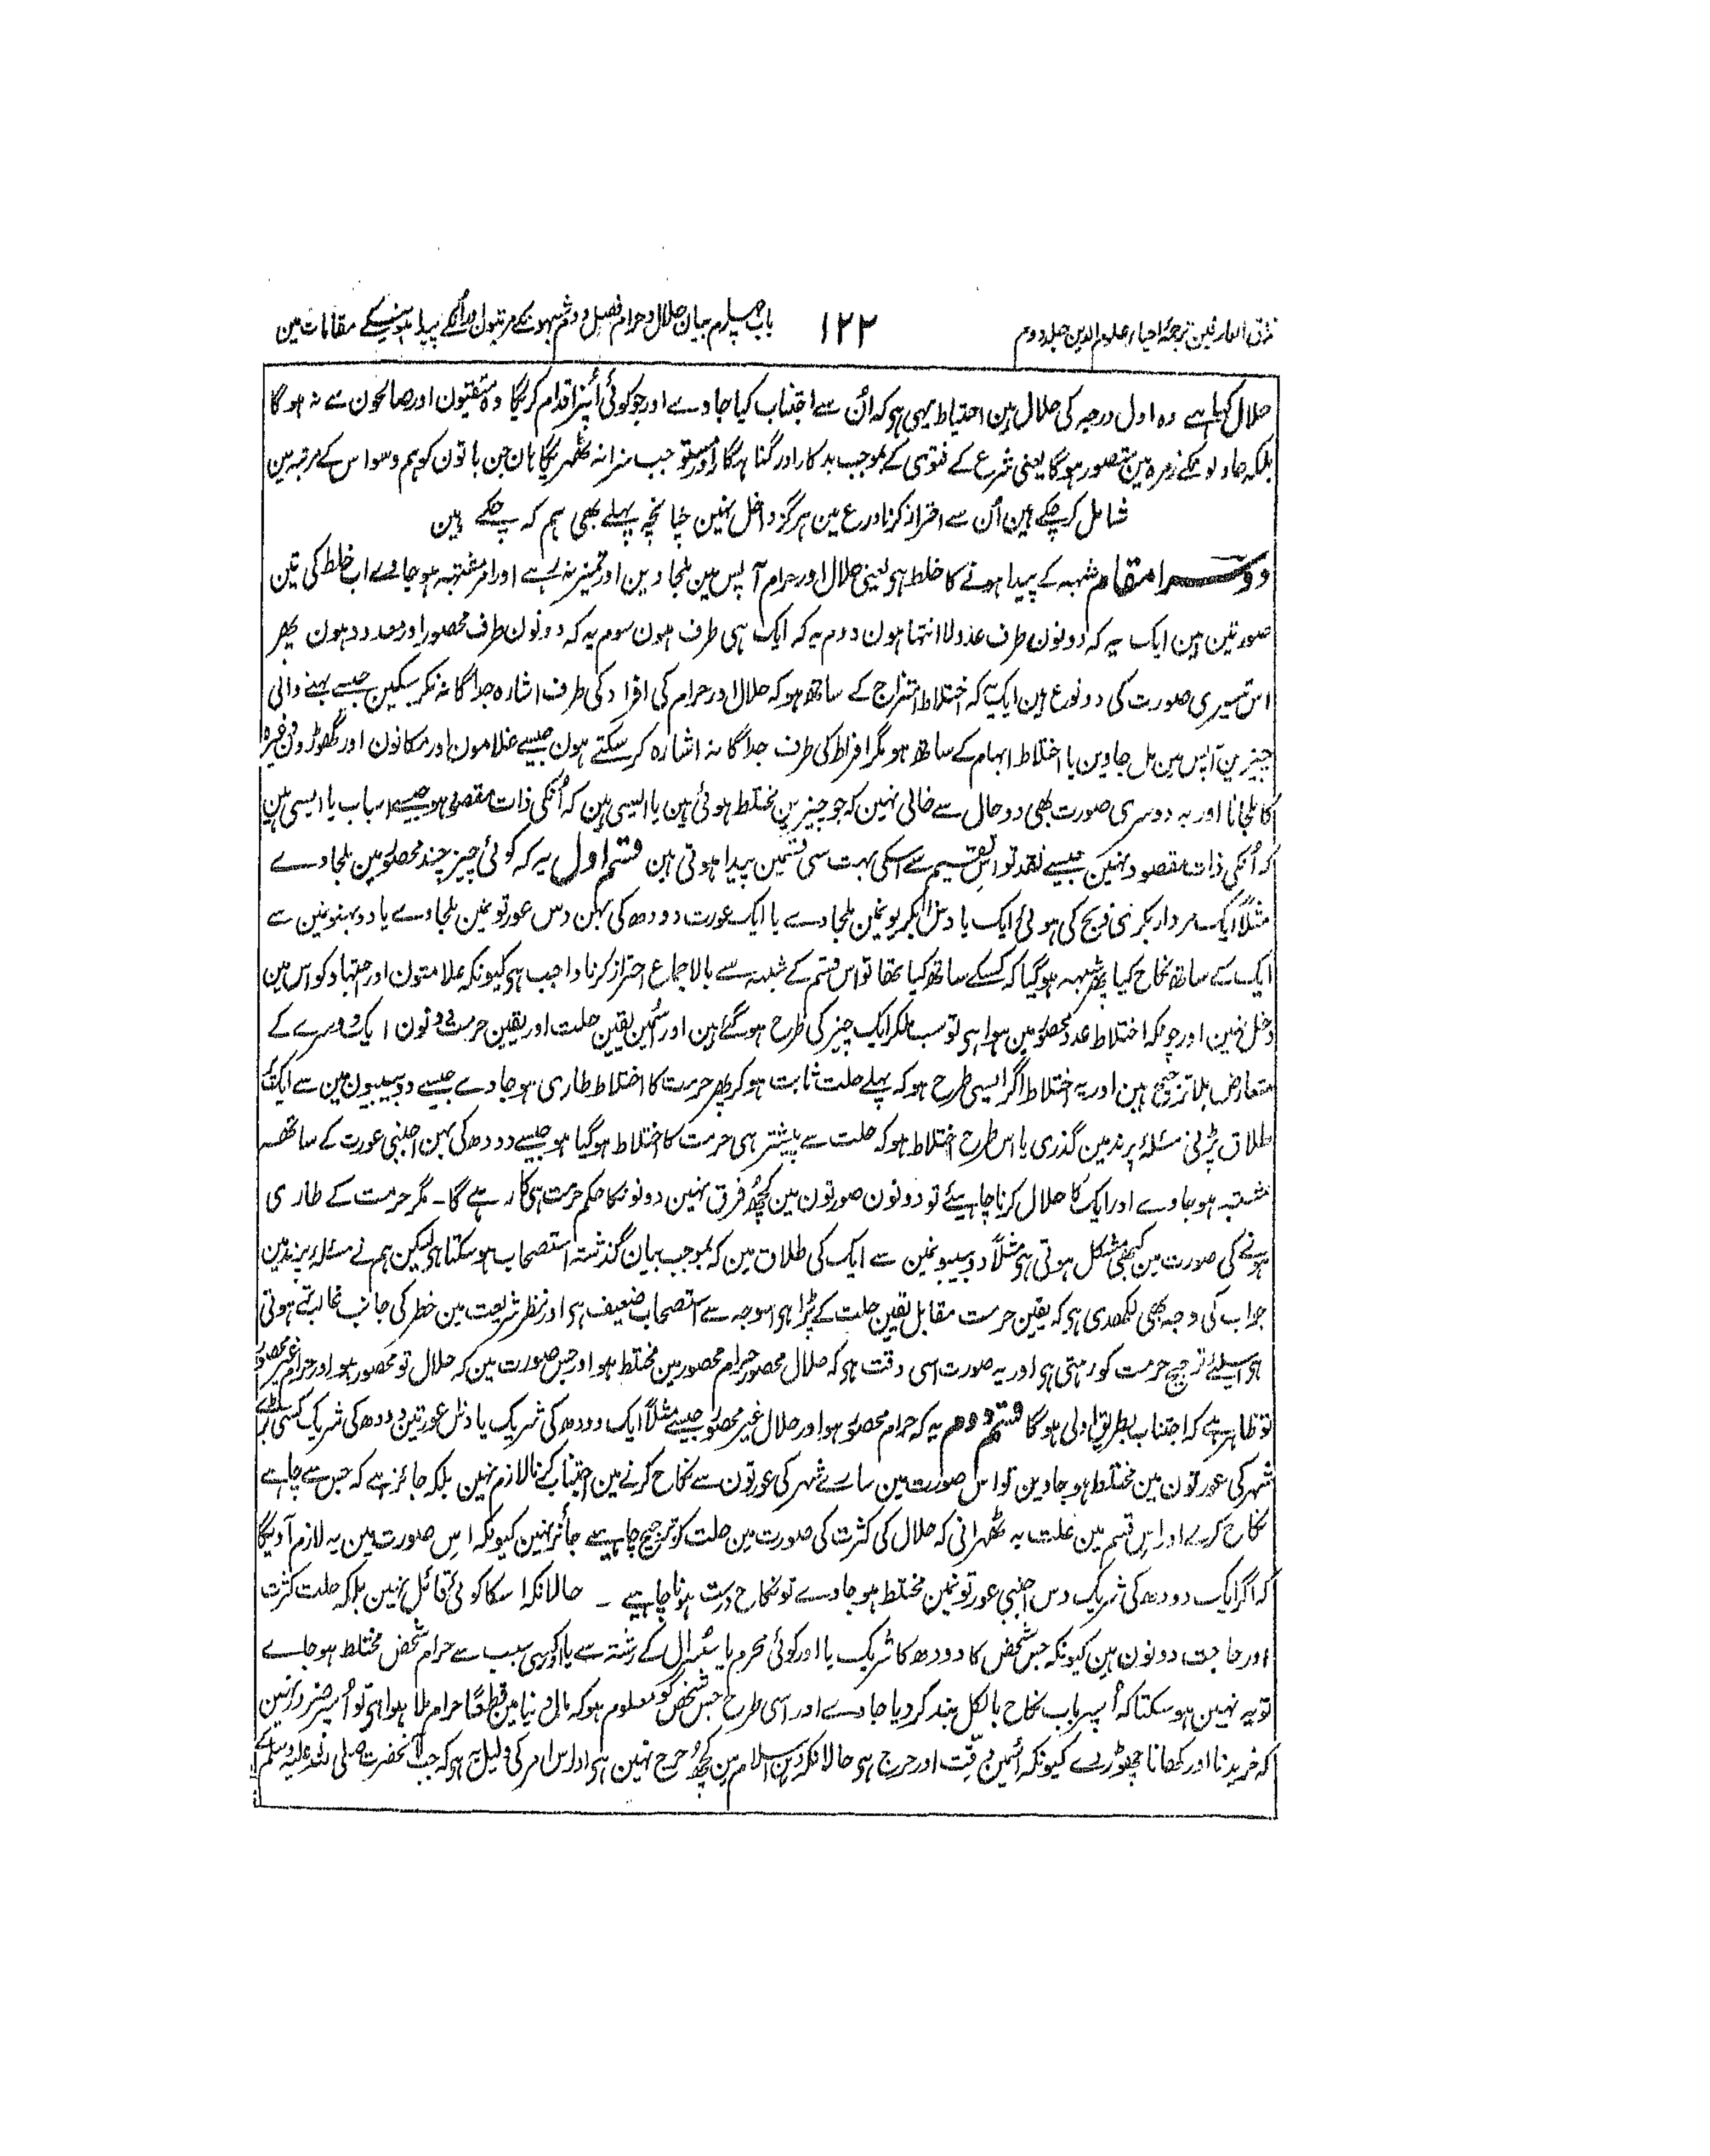 مذاق العارفین ترجمۂ احیاء علوم الدین جلد دوم
۱۲۲
باب چہارم بیان حلال و حرام فصل دوم شبہونکے مرتبون اور اُنکے پیدا ہونیکے مقامات مین
حلال کہا ہے وہ اول درجہ کی حلال ہین احتیاط یہی ہو کہ اُن سے اجتناب کیا جاوے اور جو کوئی اُنپر اقدام کریگا وہ متقیون اور صالحون سے نہ ہوگا
بلکہ عادلونکے زمرہ مین متصور ہوگا یعنی شرع کے فتوی کے بموجب بدکار اور گناہگار اور مستوجب سزا نہ ٹھہریگا ہان جن باتون کو ہم وسواس کے مرتبہ مین
شامل کر چکے ہین اُن سے احتراز کرنا ورع مین ہرگز داخل نہین چنانچہ پہلے بھی ہم کہ چکے ہین
دوسرا مقام شبہہ کے پیدا ہونے کا خلط ہی یعنی حلال اور حرام آپس مین ملجاوین اور تمیز نہ رہے اور امر مشتبہ ہو جاوے اب خلط کی تین
صورتین ہین ایک یہ کہ دونون طرف عدد لا انتہا ہون دوم یہ کہ ایک ہی طرف ہون سوم یہ کہ دونون طرف محصور اور معدود ہون پھر
اس تیسری صورت کی دو نوع ہین ایک یہ کہ اختلاط امتزاج کے ساتھ ہو کہ حلال اور حرام کی افراد کی طرف اشارہ جداگانہ نکر سکین جیسے بہنے والی
چیزین آپس مین مل جاوین یا اختلاط ابہام کے ساتھ ہو مگر افراط کی طرف جداگانہ اشارہ کر سکتے ہون جیسے غلامون اور مکانون اور گھوڑون وغیرہ
کا ملجانا اور یہ دوسری صورت بھی دو حال سے خالی نہین کہ جو چیزین مختلط ہوئی ہین یا ایسی ہین کہ اُنکی ذات مقصود ہو جیسے اسباب یا ایسی ہین
کہ اُنکی ذات مقصود نہین جیسے نقد تو اس تقسیم سے اسکی بہت سی قسمین پیدا ہوتی ہین قسم اول یہ کہ کوئی چیز چند محصور مین ملجاوے
مثلاً ایک مردار بکری ذبح کی ہوئی ایک یا دس بکریونمین ملجاوے یا ایک عورت دودھ کی بہن دس عورتونمین ملجاوے یا دو بہنونمین سے
ایک کے ساتھ نکاح کیا پھر شبہہ ہو گیا کہ کسکے ساتھ کیا تھا تو اس قسم کے شبہہ سے بالاجماع احتراز کرنا واجب ہی کیونکہ علامتون اور اجتہاد کو اس مین
دخل نہین اور چونکہ اختلاط عدد محصور مین ہوا ہی تو سب ملکر ایک چیز کی طرح ہو گئے ہین اور اُسمین یقین حلت اور یقین حرمت دونون ایک دوسرے کے
متعارض بلا ترجیح ہین اور یہ اختلاط اگر ایسی طرح ہو کہ پہلے حلت ثابت ہو کر پھر حرمت کا اختلاط طاری ہو جاوے جیسے دو بیبیون مین سے ایک پر
طلاق پڑنی مسئلۂ پرند مین گذری یا اس طرح اختلاط ہو کہ حلت سے پیشتر ہی حرمت کا اختلاط ہو گیا ہو جیسے دودھ کی بہن اجنبی عورت کے ساتھ
مشتبہ ہو جاوے اور ایک کا حلال کرنا چاہیئے تو دونون صورتون مین کچھ فرق نہین دونونکا حکم حرمت ہی کا رہے گا۔ مگر حرمت کے طاری
ہونے کی صورت مین کبھی مشکل ہوتی ہی مثلاً دو بیبیونمین سے ایک کی طلاق مین کہ بموجب بیان گذشتہ استصحاب ہو سکتا ہی لیکن ہم نے مسئلۂ پرند مین
جواب کی وجہ بھی لکھدی ہی کہ یقین حرمت مقابل یقین حلت کے پڑا ہی اسوجہ سے استصحاب ضعیف ہی اور نظر شریعت مین خطر کی جانب غالب ہوتی
ہی اسیلئے ترجیح حرمت کو رہتی ہی اور یہ صورت اسی وقت ہو کہ حلال محصور حرام محصور مین مختلط ہو اور جس صورت مین کہ حلال تو محصور ہو اور حرام غیر محصور
تو ظاہر ہے کہ اجتناب بطریق اولی ہوگا قسم دوم یہ کہ حرام محصور ہو اور حلال غیر محصور جیسے مثلاً ایک دودھ کی شریک یا دس عورتین دودھ کی شریک کسی بڑے
شہر کی عورتون مین مختلط ہو جاوین تو اس صورت مین سارے شہر کی عورتون سے نکاح کرنے مین اجتناب کرنا لازم نہین بلکہ جائز ہے کہ جس سے چاہے
نکاح کرے اور اس قسم مین علت یہ ٹھہرانی کہ حلال کی کثرت کی صورت مین حلت کو ترجیح چاہیے جائز نہین کیونکہ اس صورت مین یہ لازم آویگا
کہ اگر ایک دودھ کی شریک دس اجنبی عورتونمین مختلط ہو جاوے تو نکاح درست ہونا چاہیے ۔ حالانکہ اسکا کوئی قائل نہین بلکہ علت کثرت
اور حاجت دونون ہین کیونکہ جس شخص کا دودھ کا شریک یا اور کوئی محرم یا سسرال کے رشتہ سے یا اور کسی سبب سے حرام شخص مختلط ہو جاے
تو یہ نہین ہو سکتا کہ اُسپر باب نکاح بالکل بند کر دیا جاوے اور اسی طرح جس شخص کو معلوم ہو کہ مال دنیا مین قطعًا حرام ملا ہوا ہی تو اُسپر ضرور نہین
کہ خریدنا اور کھانا چھوڑ دے کیونکہ اُسمین دقت اور حرج ہی حالانکہ دین اسلام مین کچھ حرج نہین ہی اور اس امر کی دلیل یہ ہو کہ جب آنحضرت صلی اللہ علیہ وسلم کے